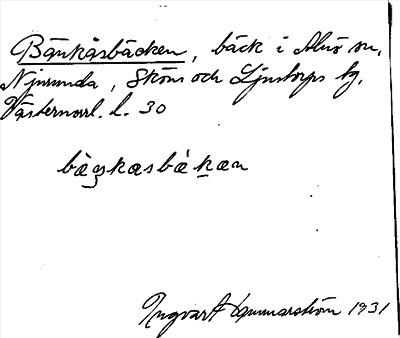 Bänkåsbäcken, bäck i Alnö sn,
Njurunda, Sköns och Ljustorps tg,
Västernorrl. l. 30
Ingvart Hammarström 1931